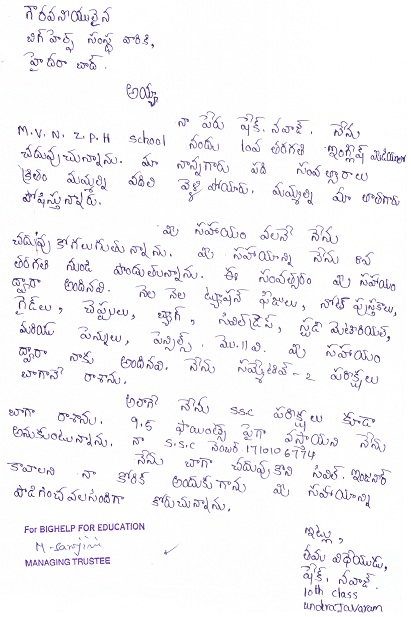 గౌరవనీయులైన
బిగ్‌హెల్ప్ సంస్థ వారికి,
హైదరాబాద్.
అయ్యా
నా పేరు షేక్. నవాజ్. నేను
M.V.N.Z.P.H school నందు 10వ తరగతి ఇంగ్లీష్ మీడియం
చదువుచున్నాను. మా నాన్నగారు పది సంవత్సరాలు
క్రితం మమ్మల్ని వదిలి వెళ్ళిపోయారు. మమ్మల్ని మా తాతగారు
పోషిస్తున్నారు.
మీ సహాయం వలనే నేను
చదువుకోగలుగుతున్నాను. మీ సహాయాన్ని నేను
తరగతి నుండి పొందుతున్నాను. ఈ సంవత్సరం మీ సహాయం
ద్వారా అందినవి. నెల నెల ట్యూషన్ ఫీజులు, నోట్ పుస్తకాలు,
గైడ్‌లు, చెప్పులు, బ్యాగ్, సివిల్‌డ్రెస్, స్టడీ మెటీరియల్,
మరియు పెన్నులు, పెన్సిల్స్. మొ.!!వి. మీ సహాయం
ద్వారా నాకు అందినవి. నేను సమ్మేటివ్-2 పరీక్షలు
బాగానే రాశాను.
అలాగే నేను SSC పరీక్షలు కూడా
బాగా రాశాను. 9.5 పాయింట్స్ పైగా వస్తాయని నేను
అనుకుంటున్నాను. నా S.S.C నెంబర్ 1710106774
నేను బాగా చదువుకొని సివిల్. ఇంజనీర్
కావాలని నా కోరిక అందుకుగాను మీ సహాయాన్ని
పొడిగించవలసిందిగా కోరుచున్నాను.
ఇట్లు,
తమ విధేయుడు,
షేక్. నవాజ్.
10th class
undrajavaram
For BIGHELP FOR EDUCATION
M. Sarojini
MANAGING TRUSTEE